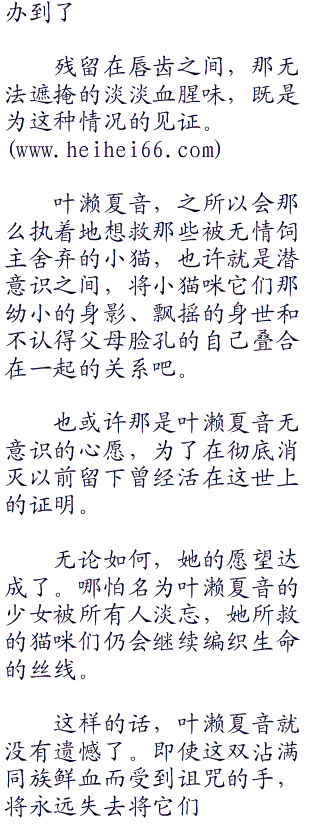 办到了
残留在唇齿之间，那无
法遮掩的淡淡血腥味，既是
为这种情况的见证。
(www.heihei66.com)
叶濑夏音，之所以会那
么执着地想救那些被无情饲
主舍弃的小猫，也许就是潜
意识之间，将小猫咪它们那
幼小的身影、飘摇的身世和
不认得父母脸孔的自己叠合
在一起的关系吧。
也或许那是叶濑夏音无
意识的心愿，为了在彻底消
灭以前留下曾经活在这世上
的证明。
无论如何，她的愿望达
成了。哪怕名为叶濑夏音的
少女被所有人淡忘，她所救
的猫咪们仍会继续编织生命
的丝线。
这样的话，叶濑夏音就
没有遗憾了。即使这双沾满
同族鲜血而受到诅咒的手，
将永远失去将它们